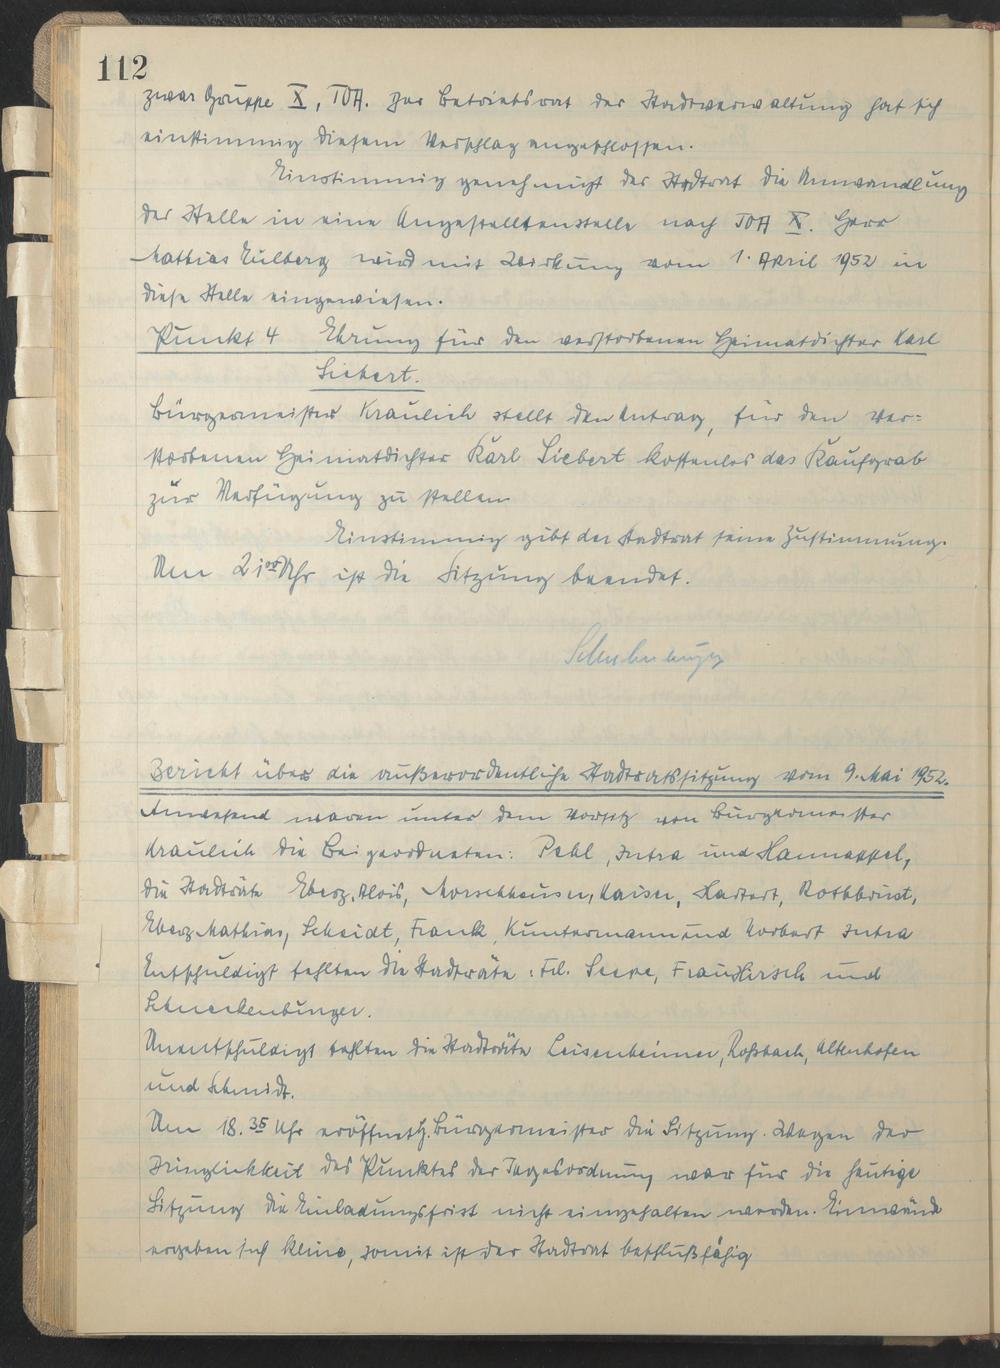 112
zwar Gruppe X, TOA. Der Betriebsrat der Stadtverwaltung hat sich
einstimmig diesem Vorschlag angeschlossen.
Einstimmig genehmigt der Stadtrat die Umwandlung
der Stelle in eine Angestelltenstelle nach TOA X. Herr
Mathias Eulberg wird mit Wirkung vom 1. April 1952 in
diese Stelle eingewiesen.
Punkt 4 Ehrung für den verstorbenen Heimatdichter Karl
Siebert.
Bürgermeister Kraulich stellt den Antrag, für den ver=
storbenen Heimatdichter Karl Siebert kostenlos das Kaufgrab
zur Verfügung zu stellen
Einstimmig gibt der Stadtrat seine Zustimmung.
Um 21 00 Uhr ist die Sitzung beendet.
Bericht über die außerordentliche Stadtratssitzung vom 9. Mai 1952.
Anwesend waren unter dem Vorsitz von Bürgermeister
Kraulich die Beigeordneten: Pehl, Intra und Hannappel,
die Stadträte Eberz, Alois, Morschhäuser, Kaiser, Hartert, Rothbrust,
Eberz Mathias, Scheidt, Frank, Kuntermann und Norbert Intra
Entschuldigt fehlten die Stadträte: Frl. Seepe, Frau Hirsch und
Schneckenbünger.
Unentschuldigt fehlten die Stadträte Leisenheimer, Roßbach, Altenhofen
und Schmidt.
Um 18.35 Uhr eröffnet H. Bürgermeister die Sitzung. Wegen der
Dringlichkeit des Punktes der Tagesordnung war für die heutige
Sitzung die Einladungsfrist nicht eingehalten worden. Einwände
ergeben sich keine, somit ist der Stadtrat beschlußfähig